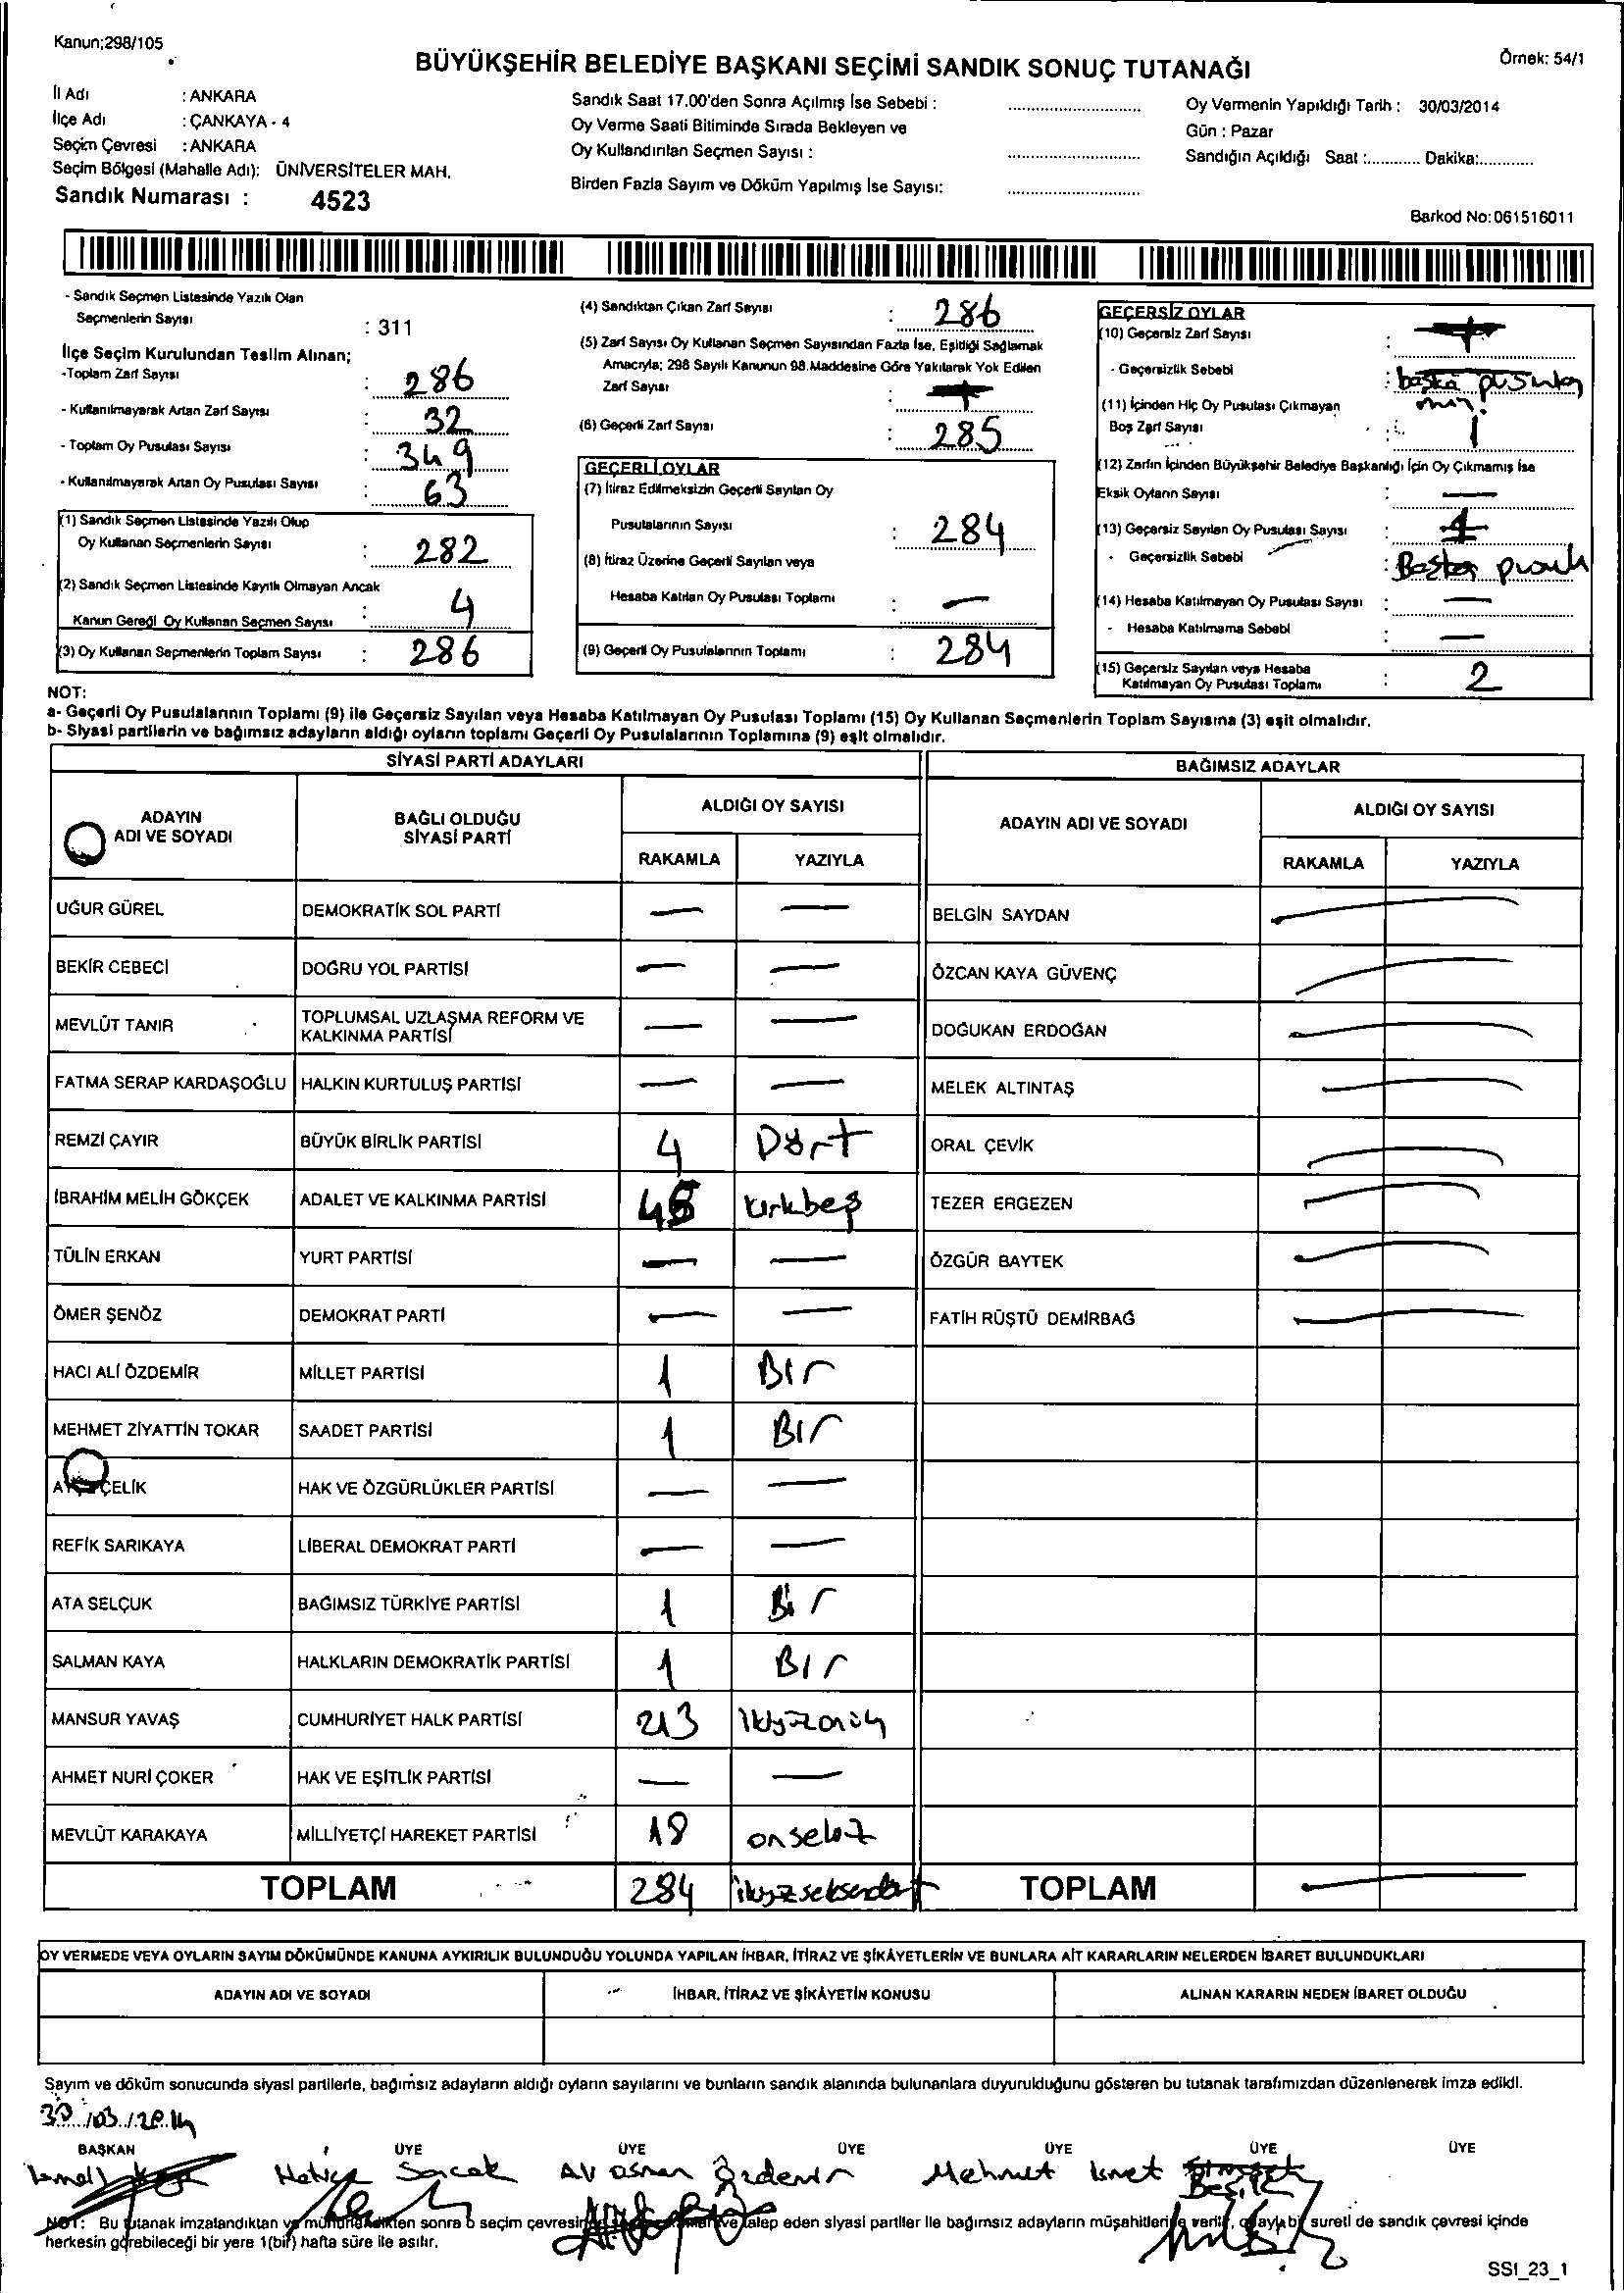 Kanun;298/105
BÜYÜKŞEHİR BELEDİYE BAŞKANI SEÇİMİ SANDIK SONUÇ TUTANAĞI
Örnek: 54/1
İl Adı : ANKARA
İlçe Adı : ÇANKAYA - 4
Seçim Çevresi : ANKARA
Seçim Bölgesi (Mahalle Adı): ÜNİVERSİTELER MAH.
Sandık Numarası : 4523
Sandık Saat 17.00'den Sonra Açılmış İse Sebebi :
Oy Verme Saati Bitiminde Sırada Bekleyen ve
Oy Kullandırılan Seçmen Sayısı :
Birden Fazla Sayım ve Döküm Yapılmış İse Sayısı:
Oy Vermenin Yapıldığı Tarih : 30/03/2014
Gün : Pazar
Sandığın Açıldığı Saat :............ Dakika:............
Barkod No:061516011
- Sandık Seçmen Listesinde Yazılı Olan
Seçmenlerin Sayısı : 311
İlçe Seçim Kurulundan Teslim Alınan;
-Toplam Zarf Sayısı : 286
- Kullanılmayarak Artan Zarf Sayısı : 32
- Toplam Oy Pusulası Sayısı : 349
- Kullanılmayarak Artan Oy Pusulası Sayısı : 63
(1) Sandık Seçmen Listesinde Yazılı Olup
Oy Kullanan Seçmenlerin Sayısı : 282
(2) Sandık Seçmen Listesinde Kayıtlı Olmayan Ancak
Kanun Gereği Oy Kullanan Seçmen Sayısı : 4
(3) Oy Kullanan Seçmenlerin Toplam Sayısı : 286
(4) Sandıktan Çıkan Zarf Sayısı : 286
(5) Zarf Sayısı Oy Kullanan Seçmen Sayısından Fazla İse, Eşitliği Sağlamak
Amacıyla; 298 Sayılı Kanunun 98.Maddesine Göre Yakılarak Yok Edilen
Zarf Sayısı :
(6) Geçerli Zarf Sayısı : 285
GEÇERLİ OYLAR
(7) İtiraz Edilmeksizin Geçerli Sayılan Oy
Pusulalarının Sayısı : 284
(8) İtiraz Üzerine Geçerli Sayılan veya
Hesaba Katılan Oy Pusulası Toplamı : —
(9) Geçerli Oy Pusulalarının Toplamı : 284
GEÇERSİZ OYLAR
(10) Geçersiz Zarf Sayısı :
- Geçersizlik Sebebi : başka
(11) İçinden Hiç Oy Pusulası Çıkmayan
Boş Zarf Sayısı : 1
(12) Zarfın İçinden Büyükşehir Belediye Başkanlığı İçin Oy Çıkmamış İse
Eksik Oyların Sayısı : —
(13) Geçersiz Sayılan Oy Pusulası Sayısı : 1
- Geçersizlik Sebebi :
(14) Hesaba Katılmayan Oy Pusulası Sayısı : —
- Hesaba Katılmama Sebebi : —
(15) Geçersiz Sayılan veya Hesaba
Katılmayan Oy Pusulası Toplamı : 2
NOT:
a- Geçerli Oy Pusulalarının Toplamı (9) ile Geçersiz Sayılan veya Hesaba Katılmayan Oy Pusulası Toplamı (15) Oy Kullanan Seçmenlerin Toplam Sayısına (3) eşit olmalıdır.
b- Siyasi partilerin ve bağımsız adayların aldığı oyların toplamı Geçerli Oy Pusulalarının Toplamına (9) eşit olmalıdır.
SİYASİ PARTİ ADAYLARI
BAĞIMSIZ ADAYLAR
ADAYIN ADI VE SOYADI
BAĞLI OLDUĞU SİYASİ PARTİ
ALDIĞI OY SAYISI
RAKAMLA YAZIYLA
ADAYIN ADI VE SOYADI
ALDIĞI OY SAYISI
RAKAMLA YAZIYLA
UĞUR GÜREL DEMOKRATİK SOL PARTİ — — BELGİN SAYDAN —
BEKİR CEBECİ DOĞRU YOL PARTİSİ — — ÖZCAN KAYA GÜVENÇ —
MEVLÜT TANIR TOPLUMSAL UZLAŞMA REFORM VE KALKINMA PARTİSİ — — DOĞUKAN ERDOĞAN —
FATMA SERAP KARDAŞOĞLU HALKIN KURTULUŞ PARTİSİ — — MELEK ALTINTAŞ —
REMZİ ÇAYIR BÜYÜK BİRLİK PARTİSİ 4 Dört ORAL ÇEVİK —
İBRAHİM MELİH GÖKÇEK ADALET VE KALKINMA PARTİSİ 45 kırkbeş TEZER ERGEZEN —
TÜLİN ERKAN YURT PARTİSİ — — ÖZGÜR BAYTEK —
ÖMER ŞENÖZ DEMOKRAT PARTİ — — FATİH RÜŞTÜ DEMİRBAĞ —
HACI ALİ ÖZDEMİR MİLLET PARTİSİ 1 Bir
MEHMET ZİYATTİN TOKAR SAADET PARTİSİ 1 Bir
ÇELİK HAK VE ÖZGÜRLÜKLER PARTİSİ — —
REFİK SARIKAYA LİBERAL DEMOKRAT PARTİ — —
ATA SELÇUK BAĞIMSIZ TÜRKİYE PARTİSİ 1 Bir
SALMAN KAYA HALKLARIN DEMOKRATİK PARTİSİ 1 Bir
MANSUR YAVAŞ CUMHURİYET HALK PARTİSİ 213 ikiyüzonüç
AHMET NURİ ÇOKER HAK VE EŞİTLİK PARTİSİ — —
MEVLÜT KARAKAYA MİLLİYETÇİ HAREKET PARTİSİ 18 onsekiz
TOPLAM 284 ikiyüzseksendört TOPLAM —
OY VERMEDE VEYA OYLARIN SAYIM DÖKÜMÜNDE KANUNA AYKIRILIK BULUNDUĞU YOLUNDA YAPILAN İHBAR, İTİRAZ VE ŞİKÂYETLERİN VE BUNLARA AİT KARARLARIN NELERDEN İBARET BULUNDUKLARI
ADAYIN ADI VE SOYADI İHBAR, İTİRAZ VE ŞİKÂYETİN KONUSU ALINAN KARARIN NEDEN İBARET OLDUĞU
Sayım ve döküm sonucunda siyasi partilerle, bağımsız adayların aldığı oyların sayılarını ve bunların sandık alanında bulunanlara duyurulduğunu gösteren bu tutanak tarafımızdan düzenlenerek imza edildi.
30/03/2014
BAŞKAN ÜYE ÜYE ÜYE ÜYE ÜYE ÜYE
Hatice Sacak Av Osman Özdemir Mehmet İsmet
NOT: Bu tutanak imzalandıktan ve mühürlendikten sonra o seçim çevresinde ve talep eden siyasi partiler ile bağımsız adayların müşahitlerine verilir, onaylı bir sureti de sandık çevresi içinde
herkesin görebileceği bir yere 1(bir) hafta süre ile asılır.
SSI_23_1